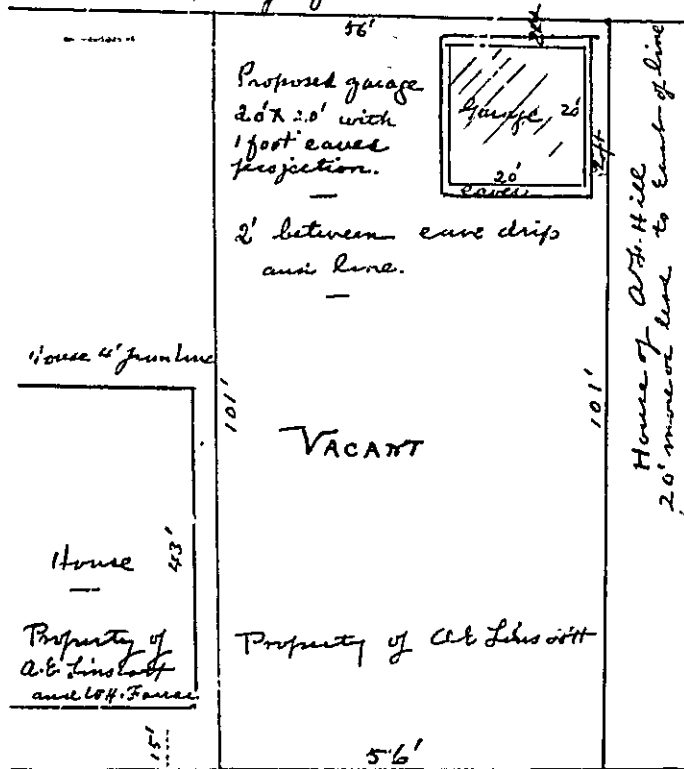 56'
2 ft
Proposed garage
20' x 20' with
1 foot eaves
projection.
Garage 20'
20'
eaves
2 ft
2' between eave drip
and line.
House 4' from line
101'
101'
House of A.F. Hill
20' more or less to East of line
VACANT
House
43'
Property of
A.E. Linscott
and W.H.
Property of A E Linscott
15'
56'